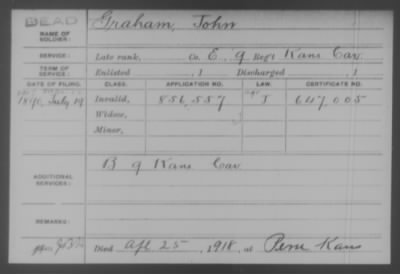 DEAD
NAME OF SOLDIER: Graham, John
SERVICE: Late rank, Co. E, 9 Reg't Kans Cav.
TERM OF SERVICE: Enlisted , 1 Discharged , 1
DATE OF FILING. CLASS. APPLICATION NO. LAW. CERTIFICATE NO.
1890, July 19 Invalid, 856,557 J 647,005
Widow,
Minor,
ADDITIONAL SERVICES: B 9 Kans Cav
REMARKS:
Died Apl 25, 1918, at Peru Kans